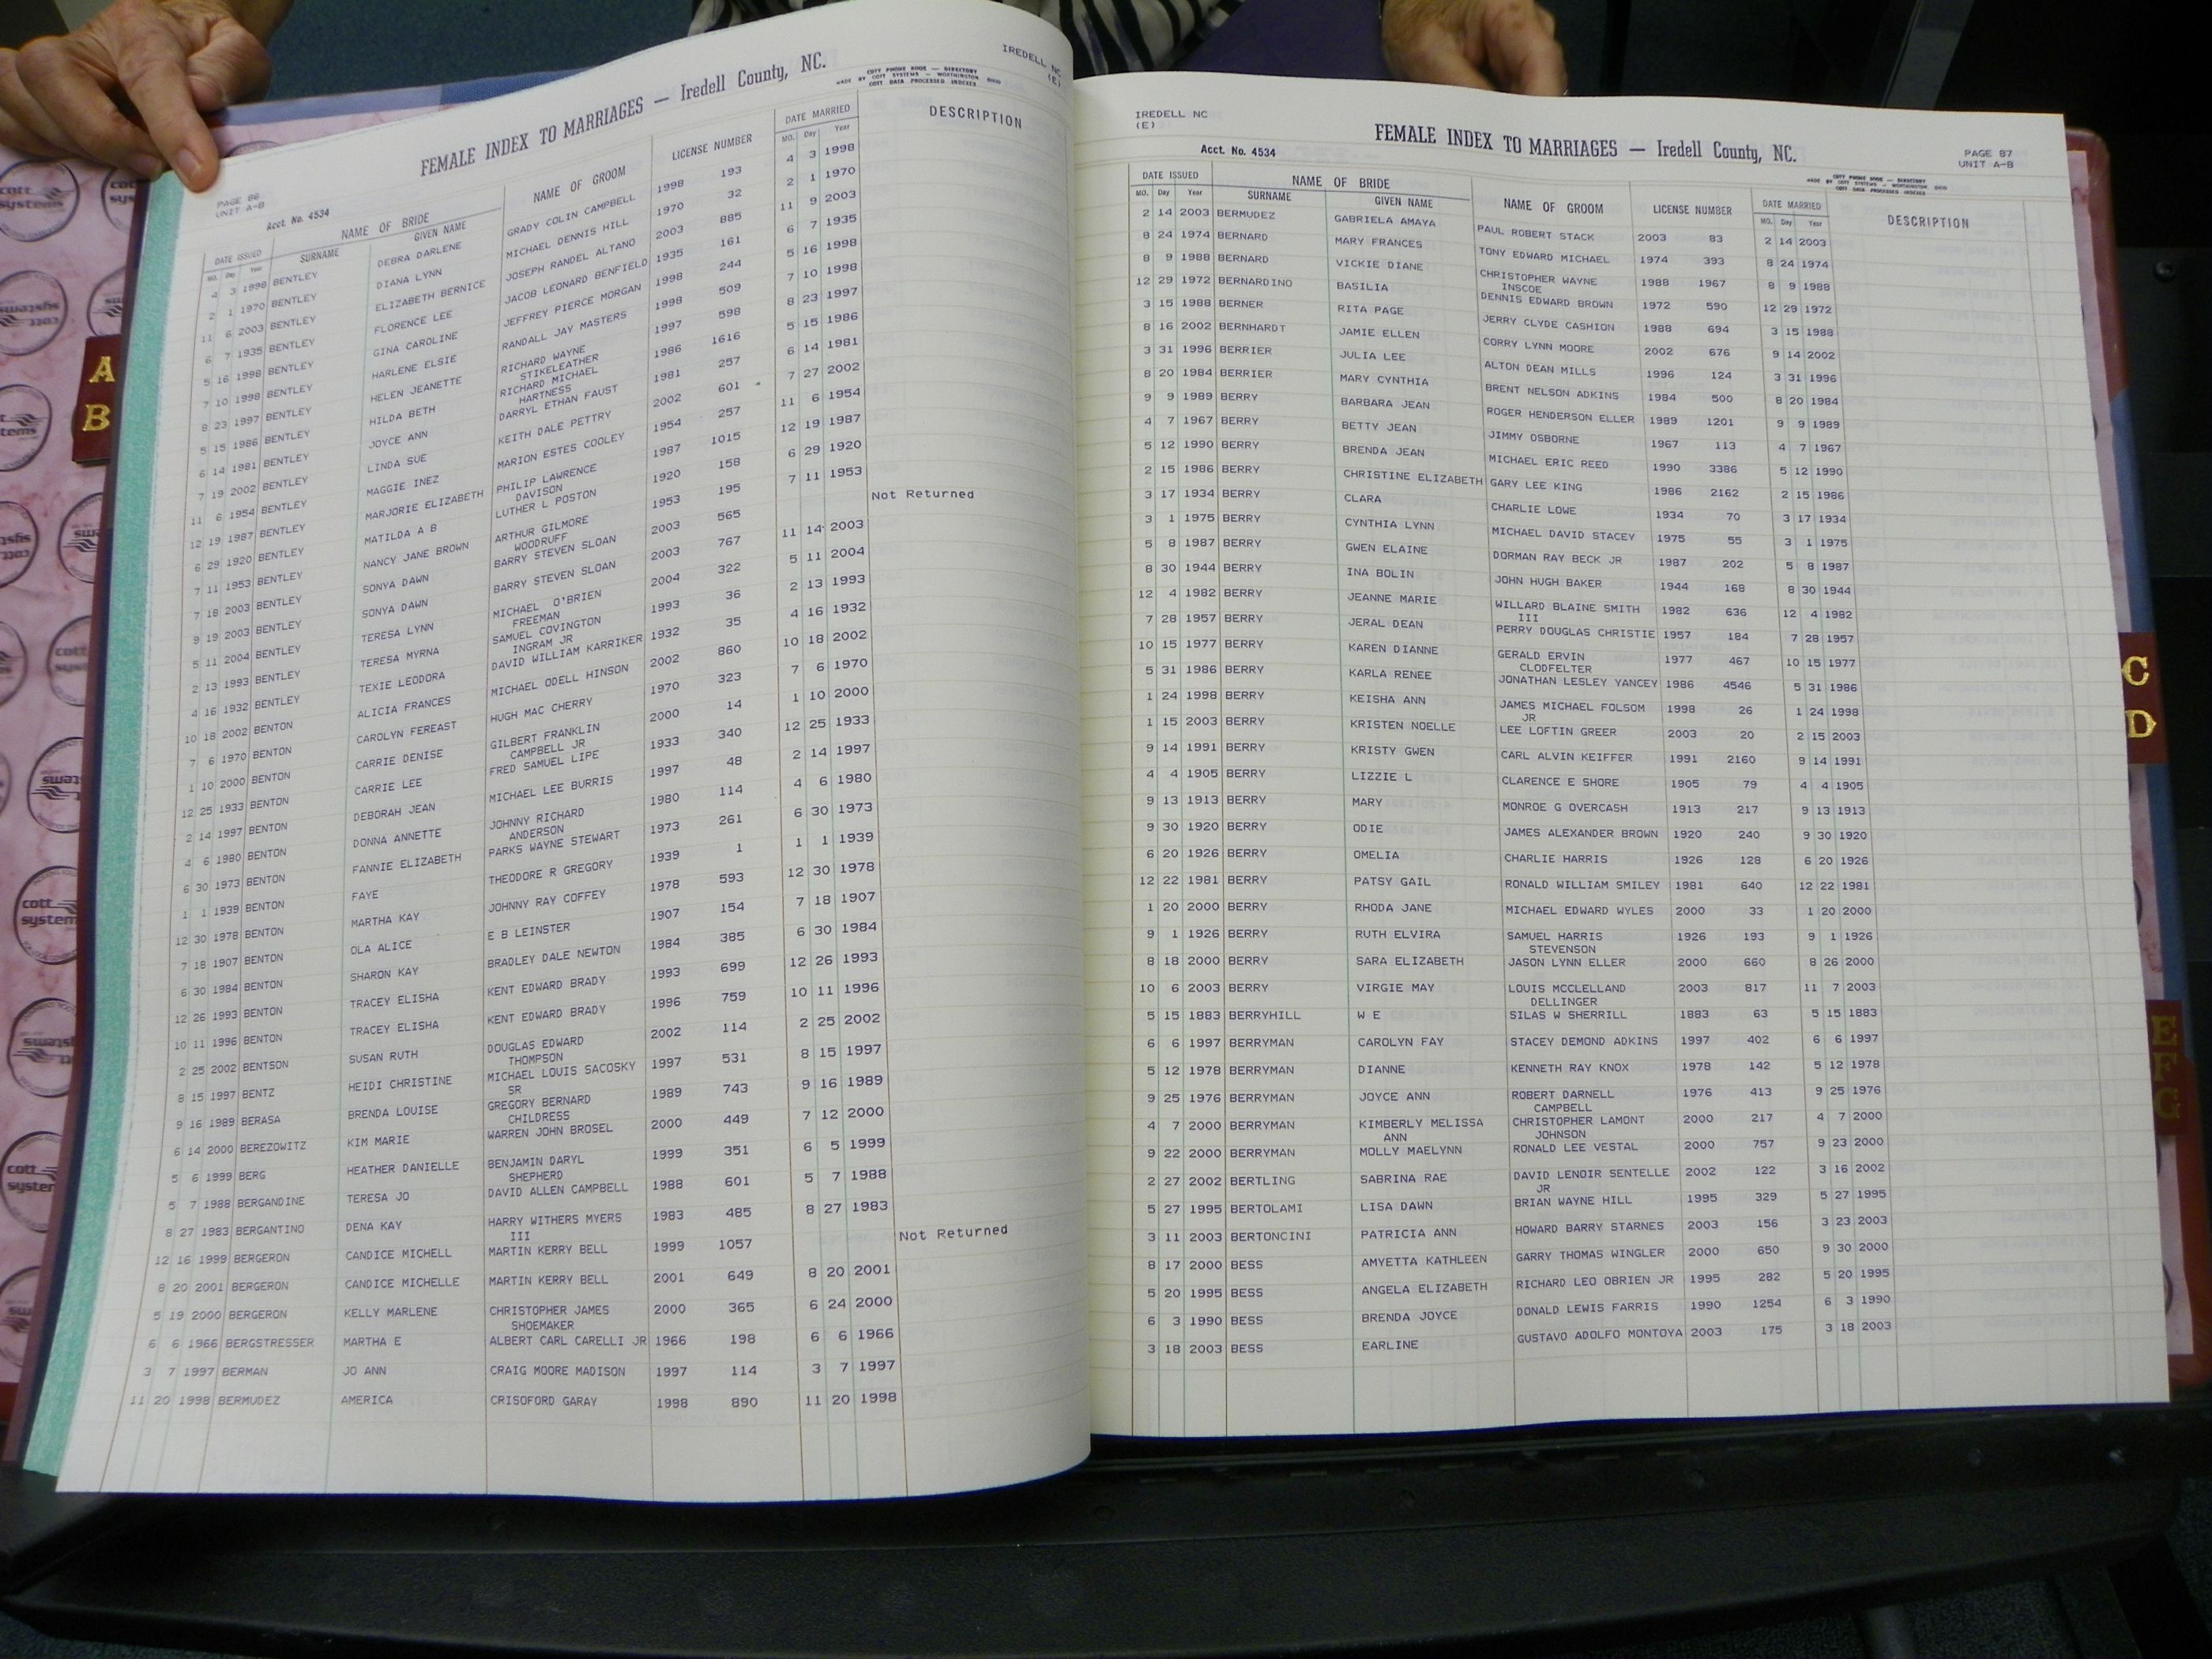 IREDELL NC
(E)
FEMALE INDEX TO MARRIAGES — Iredell County, NC.
COTT PHONE BOOK — DIRECTORY
MADE BY COTT SYSTEMS — WORTHINGTON OHIO
COTT DATA PROCESSED INDEXES
PAGE 86
UNIT A-B
Acct. No. 4534
DATE ISSUED NAME OF BRIDE NAME OF GROOM LICENSE NUMBER DATE MARRIED DESCRIPTION
MO. Day Year SURNAME GIVEN NAME MO. Day Year
4 3 1998 BENTLEY DEBRA DARLENE GRADY COLIN CAMPBELL 1998 193 4 3 1998
2 1 1970 BENTLEY DIANA LYNN MICHAEL DENNIS HILL 1970 32 2 1 1970
11 6 2003 BENTLEY ELIZABETH BERNICE JOSEPH RANDEL ALTANO 2003 885 11 9 2003
6 7 1935 BENTLEY FLORENCE LEE JACOB LEONARD BENFIELD 1935 161 6 7 1935
5 16 1998 BENTLEY GINA CAROLINE JEFFREY PIERCE MORGAN 1998 244 5 16 1998
7 10 1998 BENTLEY HARLENE ELSIE RANDALL JAY MASTERS 1998 509 7 10 1998
8 23 1997 BENTLEY HELEN JEANETTE RICHARD WAYNE 1997 598 8 23 1997
STIKELEATHER
5 15 1986 BENTLEY HILDA BETH RICHARD MICHAEL 1986 1616 5 15 1986
HARTNESS
6 14 1981 BENTLEY JOYCE ANN DARRYL ETHAN FAUST 1981 257 6 14 1981
7 19 2002 BENTLEY LINDA SUE KEITH DALE PETTRY 2002 601 7 27 2002
11 6 1954 BENTLEY MAGGIE INEZ MARION ESTES COOLEY 1954 257 11 6 1954
12 19 1987 BENTLEY MARJORIE ELIZABETH PHILIP LAWRENCE 1987 1015 12 19 1987
DAVISON
6 29 1920 BENTLEY MATILDA A B LUTHER L POSTON 1920 158 6 29 1920
7 11 1953 BENTLEY NANCY JANE BROWN ARTHUR GILMORE 1953 195 7 11 1953
WOODRUFF
7 18 2003 BENTLEY SONYA DAWN BARRY STEVEN SLOAN 2003 565 Not Returned
9 19 2003 BENTLEY SONYA DAWN BARRY STEVEN SLOAN 2003 767 11 14 2003
5 11 2004 BENTLEY TERESA LYNN MICHAEL O'BRIEN 2004 322 5 11 2004
FREEMAN
2 13 1993 BENTLEY TERESA MYRNA SAMUEL COVINGTON 1993 36 2 13 1993
INGRAM JR
4 16 1932 BENTLEY TEXIE LEODORA DAVID WILLIAM KARRIKER 1932 35 4 16 1932
10 18 2002 BENTON ALICIA FRANCES MICHAEL ODELL HINSON 2002 860 10 18 2002
7 6 1970 BENTON CAROLYN FEREAST HUGH MAC CHERRY 1970 323 7 6 1970
1 10 2000 BENTON CARRIE DENISE GILBERT FRANKLIN 2000 14 1 10 2000
CAMPBELL JR
12 25 1933 BENTON CARRIE LEE FRED SAMUEL LIPE 1933 340 12 25 1933
2 14 1997 BENTON DEBORAH JEAN MICHAEL LEE BURRIS 1997 48 2 14 1997
4 6 1980 BENTON DONNA ANNETTE JOHNNY RICHARD 1980 114 4 6 1980
ANDERSON
6 30 1973 BENTON FANNIE ELIZABETH PARKS WAYNE STEWART 1973 261 6 30 1973
1 1 1939 BENTON FAYE THEODORE R GREGORY 1939 1 1 1 1939
12 30 1978 BENTON MARTHA KAY JOHNNY RAY COFFEY 1978 593 12 30 1978
7 18 1907 BENTON OLA ALICE E B LEINSTER 1907 154 7 18 1907
6 30 1984 BENTON SHARON KAY BRADLEY DALE NEWTON 1984 385 6 30 1984
12 26 1993 BENTON TRACEY ELISHA KENT EDWARD BRADY 1993 699 12 26 1993
10 11 1996 BENTON TRACEY ELISHA KENT EDWARD BRADY 1996 759 10 11 1996
2 25 2002 BENTSON SUSAN RUTH DOUGLAS EDWARD 2002 114 2 25 2002
THOMPSON
8 15 1997 BENTZ HEIDI CHRISTINE MICHAEL LOUIS SACOSKY 1997 531 8 15 1997
SR
9 16 1989 BERASA BRENDA LOUISE GREGORY BERNARD 1989 743 9 16 1989
CHILDRESS
6 14 2000 BEREZOWITZ KIM MARIE WARREN JOHN BROSEL 2000 449 7 12 2000
5 6 1999 BERG HEATHER DANIELLE BENJAMIN DARYL 1999 351 6 5 1999
SHEPHERD
5 7 1988 BERGANDINE TERESA JO DAVID ALLEN CAMPBELL 1988 601 5 7 1988
8 27 1983 BERGANTINO DENA KAY HARRY WITHERS MYERS 1983 485 8 27 1983
III
12 16 1999 BERGERON CANDICE MICHELL MARTIN KERRY BELL 1999 1057 Not Returned
8 20 2001 BERGERON CANDICE MICHELLE MARTIN KERRY BELL 2001 649 8 20 2001
5 19 2000 BERGERON KELLY MARLENE CHRISTOPHER JAMES 2000 365 6 24 2000
SHOEMAKER
6 6 1966 BERGSTRESSER MARTHA E ALBERT CARL CARELLI JR 1966 198 6 6 1966
3 7 1997 BERMAN JO ANN CRAIG MOORE MADISON 1997 114 3 7 1997
11 20 1998 BERMUDEZ AMERICA CRISOFORD GARAY 1998 890 11 20 1998
IREDELL NC
(E)
FEMALE INDEX TO MARRIAGES — Iredell County, NC.
Acct. No. 4534
PAGE 87
UNIT A-B
COTT PHONE BOOK — DIRECTORY
MADE BY COTT SYSTEMS — WORTHINGTON OHIO
COTT DATA PROCESSED INDEXES
DATE ISSUED NAME OF BRIDE NAME OF GROOM LICENSE NUMBER DATE MARRIED DESCRIPTION
MO. Day Year SURNAME GIVEN NAME MO. Day Year
2 14 2003 BERMUDEZ GABRIELA AMAYA PAUL ROBERT STACK 2003 83 2 14 2003
8 24 1974 BERNARD MARY FRANCES TONY EDWARD MICHAEL 1974 393 8 24 1974
8 9 1988 BERNARD VICKIE DIANE CHRISTOPHER WAYNE 1988 1967 8 9 1988
INSCOE
12 29 1972 BERNARDINO BASILIA DENNIS EDWARD BROWN 1972 590 12 29 1972
3 15 1988 BERNER RITA PAGE JERRY CLYDE CASHION 1988 694 3 15 1988
8 16 2002 BERNHARDT JAMIE ELLEN CORRY LYNN MOORE 2002 676 9 14 2002
3 31 1996 BERRIER JULIA LEE ALTON DEAN MILLS 1996 124 3 31 1996
8 20 1984 BERRIER MARY CYNTHIA BRENT NELSON ADKINS 1984 500 8 20 1984
9 9 1989 BERRY BARBARA JEAN ROGER HENDERSON ELLER 1989 1201 9 9 1989
4 7 1967 BERRY BETTY JEAN JIMMY OSBORNE 1967 113 4 7 1967
5 12 1990 BERRY BRENDA JEAN MICHAEL ERIC REED 1990 3386 5 12 1990
2 15 1986 BERRY CHRISTINE ELIZABETH GARY LEE KING 1986 2162 2 15 1986
3 17 1934 BERRY CLARA CHARLIE LOWE 1934 70 3 17 1934
3 1 1975 BERRY CYNTHIA LYNN MICHAEL DAVID STACEY 1975 55 3 1 1975
5 8 1987 BERRY GWEN ELAINE DORMAN RAY BECK JR 1987 202 5 8 1987
8 30 1944 BERRY INA BOLIN JOHN HUGH BAKER 1944 168 8 30 1944
12 4 1982 BERRY JEANNE MARIE WILLARD BLAINE SMITH 1982 636 12 4 1982
III
7 28 1957 BERRY JERAL DEAN PERRY DOUGLAS CHRISTIE 1957 184 7 28 1957
10 15 1977 BERRY KAREN DIANNE GERALD ERVIN 1977 467 10 15 1977
CLODFELTER
5 31 1986 BERRY KARLA RENEE JONATHAN LESLEY YANCEY 1986 4546 5 31 1986
1 24 1998 BERRY KEISHA ANN JAMES MICHAEL FOLSOM 1998 26 1 24 1998
JR
1 15 2003 BERRY KRISTEN NOELLE LEE LOFTIN GREER 2003 20 2 15 2003
9 14 1991 BERRY KRISTY GWEN CARL ALVIN KEIFFER 1991 2160 9 14 1991
4 4 1905 BERRY LIZZIE L CLARENCE E SHORE 1905 79 4 4 1905
9 13 1913 BERRY MARY MONROE G OVERCASH 1913 217 9 13 1913
9 30 1920 BERRY ODIE JAMES ALEXANDER BROWN 1920 240 9 30 1920
6 20 1926 BERRY OMELIA CHARLIE HARRIS 1926 128 6 20 1926
12 22 1981 BERRY PATSY GAIL RONALD WILLIAM SMILEY 1981 640 12 22 1981
1 20 2000 BERRY RHODA JANE MICHAEL EDWARD WYLES 2000 33 1 20 2000
9 1 1926 BERRY RUTH ELVIRA SAMUEL HARRIS 1926 193 9 1 1926
STEVENSON
8 18 2000 BERRY SARA ELIZABETH JASON LYNN ELLER 2000 660 8 26 2000
10 6 2003 BERRY VIRGIE MAY LOUIS MCCLELLAND 2003 817 11 7 2003
DELLINGER
5 15 1883 BERRYHILL W E SILAS W SHERRILL 1883 63 5 15 1883
6 6 1997 BERRYMAN CAROLYN FAY STACEY DEMOND ADKINS 1997 402 6 6 1997
5 12 1978 BERRYMAN DIANNE KENNETH RAY KNOX 1978 142 5 12 1978
9 25 1976 BERRYMAN JOYCE ANN ROBERT DARNELL 1976 413 9 25 1976
CAMPBELL
4 7 2000 BERRYMAN KIMBERLY MELISSA CHRISTOPHER LAMONT 2000 217 4 7 2000
ANN JOHNSON
9 22 2000 BERRYMAN MOLLY MAELYNN RONALD LEE VESTAL 2000 757 9 23 2000
2 27 2002 BERTLING SABRINA RAE DAVID LENOIR SENTELLE 2002 122 3 16 2002
JR
5 27 1995 BERTOLAMI LISA DAWN BRIAN WAYNE HILL 1995 329 5 27 1995
3 11 2003 BERTONCINI PATRICIA ANN HOWARD BARRY STARNES 2003 156 3 23 2003
8 17 2000 BESS AMYETTA KATHLEEN GARRY THOMAS WINGLER 2000 650 9 30 2000
5 20 1995 BESS ANGELA ELIZABETH RICHARD LEO OBRIEN JR 1995 282 5 20 1995
6 3 1990 BESS BRENDA JOYCE DONALD LEWIS FARRIS 1990 1254 6 3 1990
3 18 2003 BESS EARLINE GUSTAVO ADOLFO MONTOYA 2003 175 3 18 2003
A
B
C
D
E
F
G
cott
systems